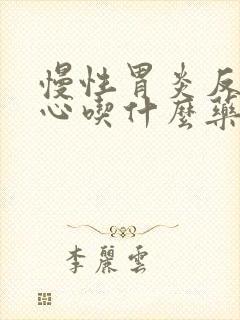 慢性胃炎反
心喫什麼藥
李麗雲